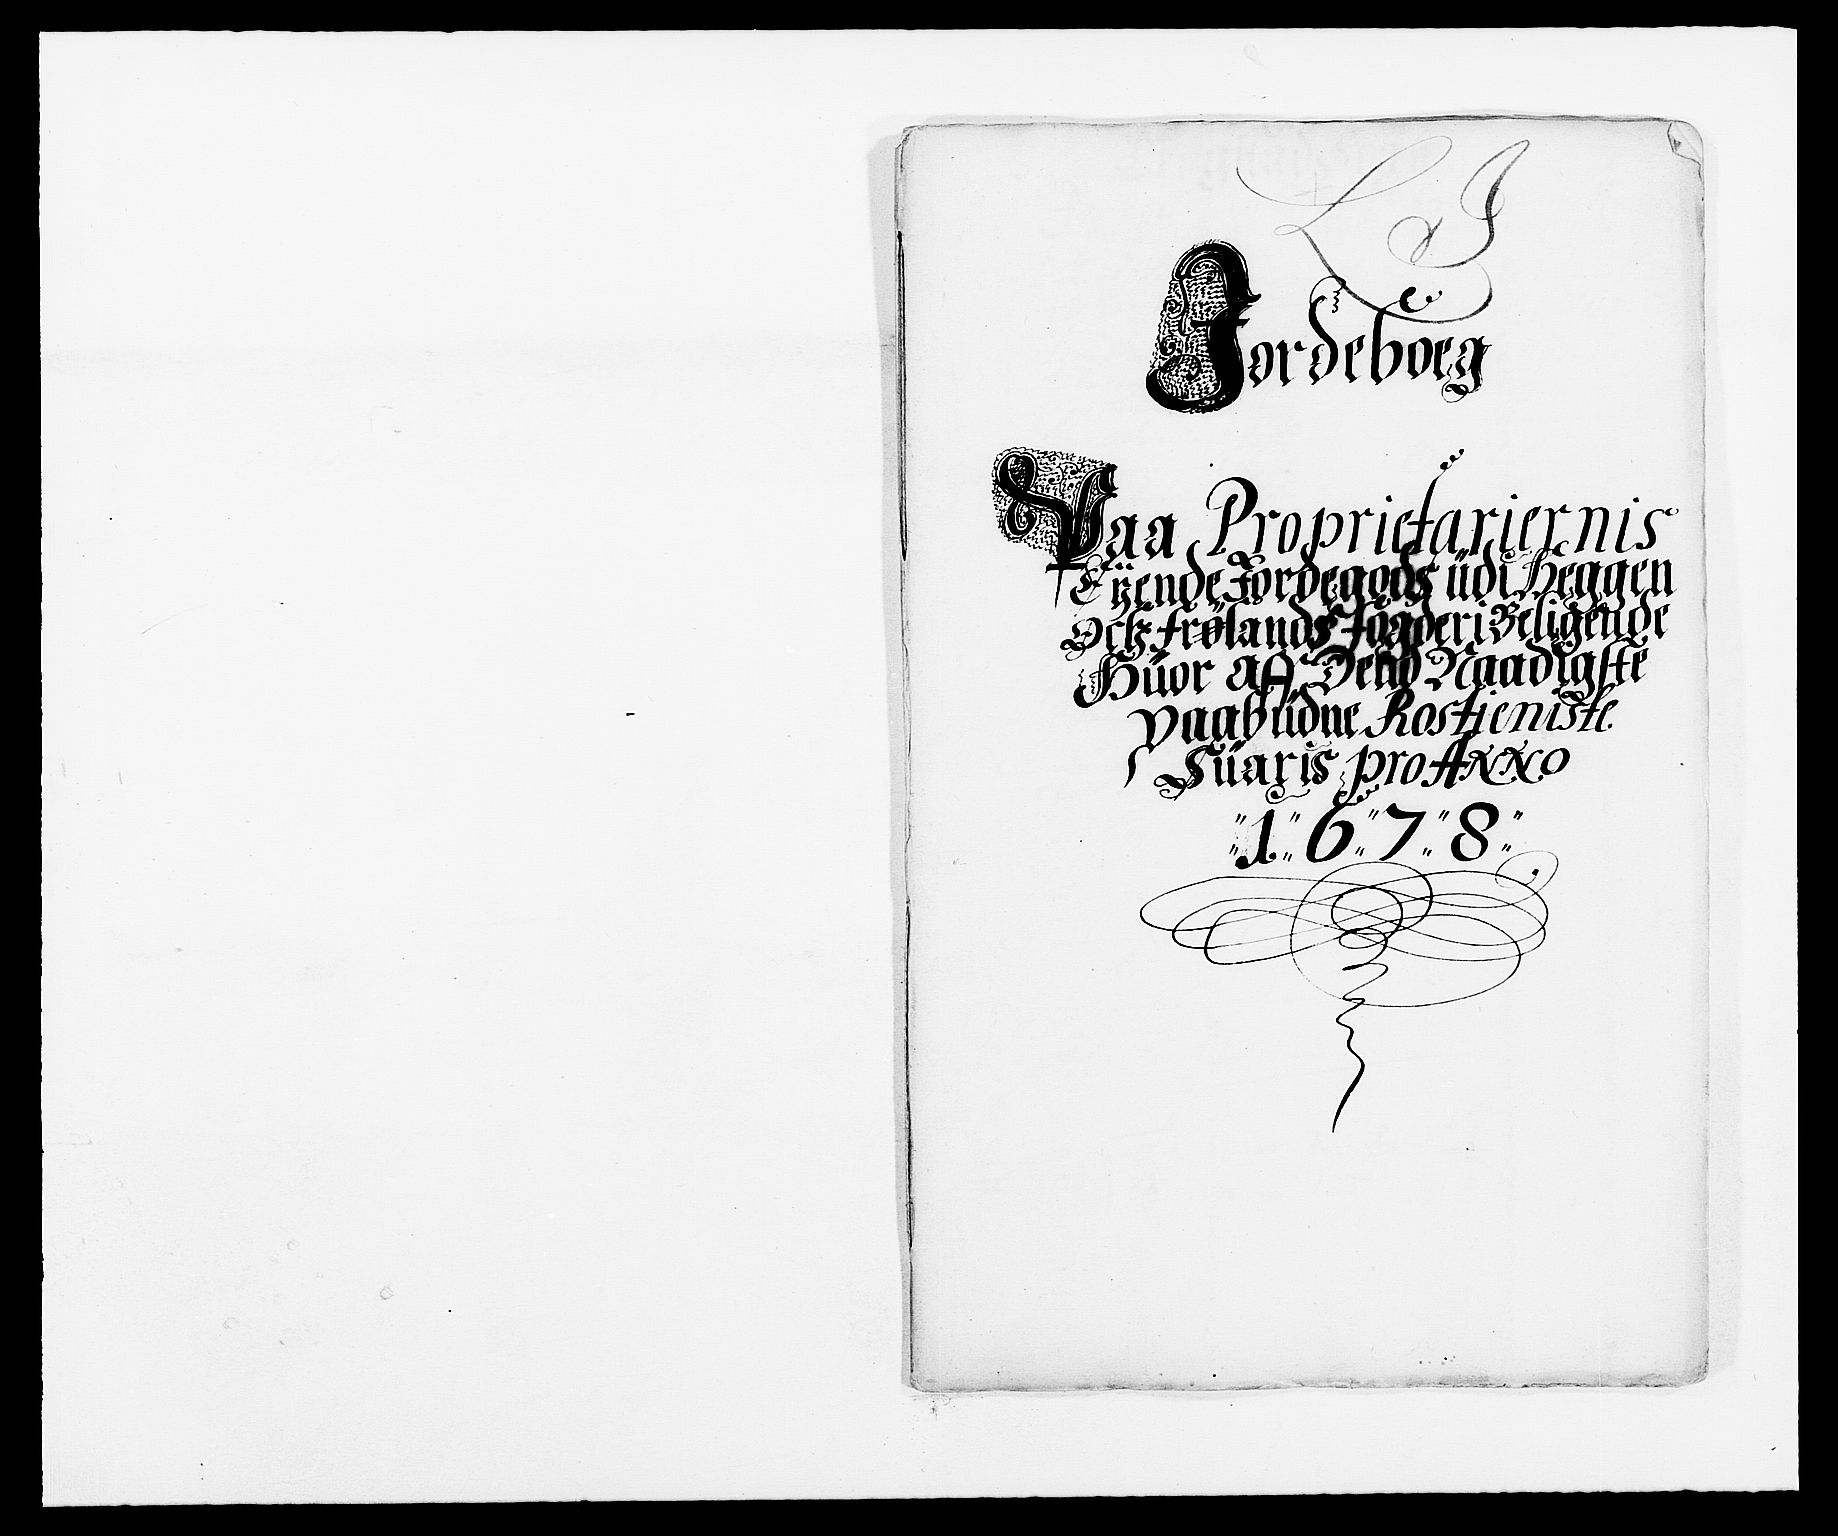 Jordeboeg
Paa Proprietariernis
Eÿende Jordegods üdi Heggen
Ock Frølands fögderi Beligende
Hüor aff Dend Naadigste
paabüdne Rostieniste
Süaris pro Anno
1678